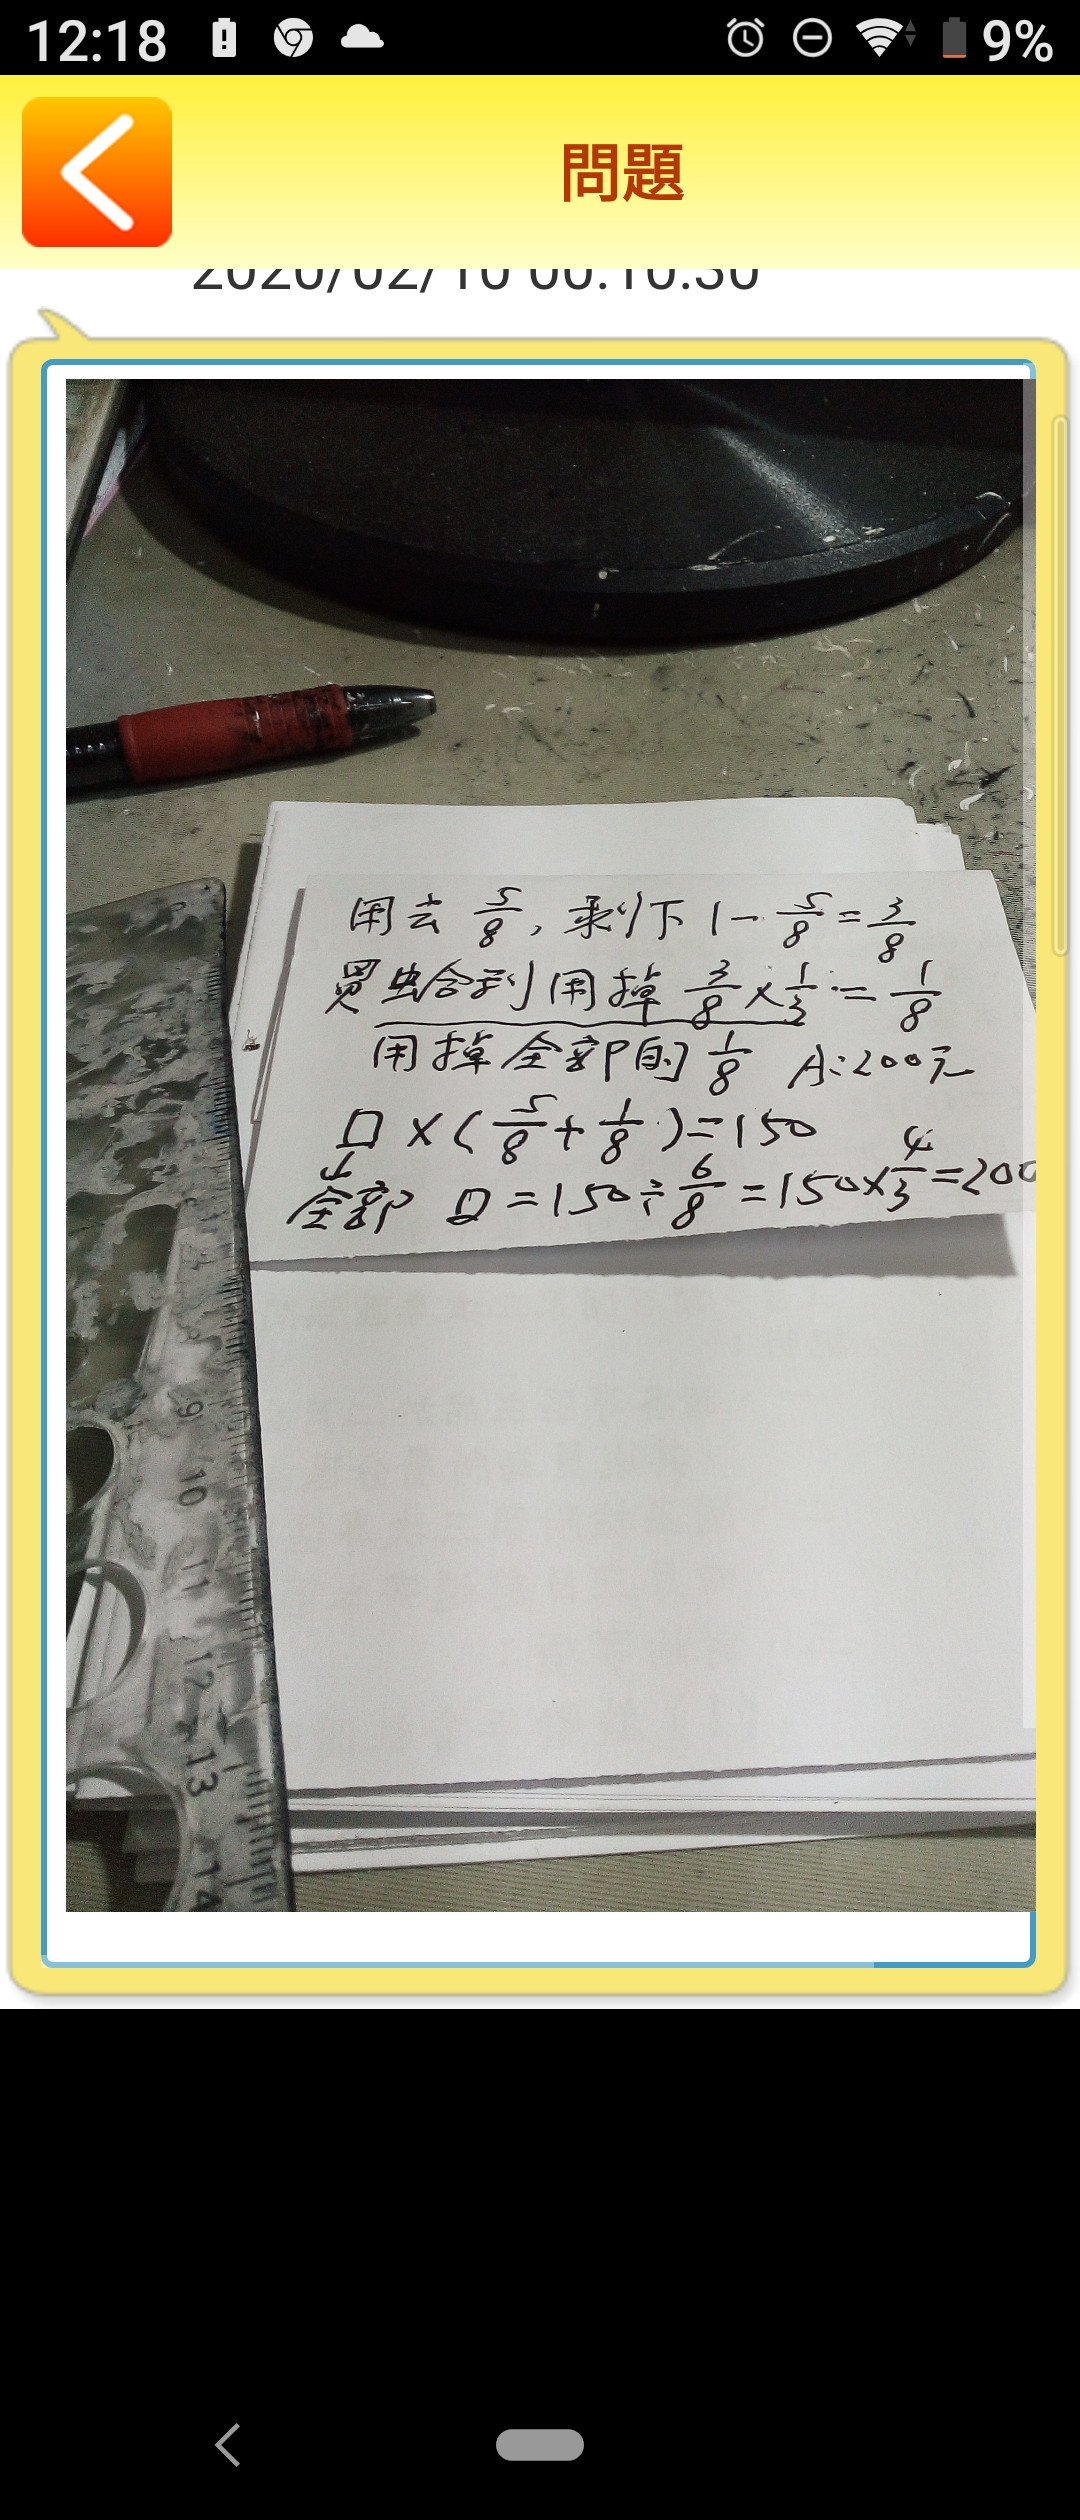 12:18
9%
問題
2020/02/10 00:10:30
用去 5/8, 剩下 1 - 5/8 = 3/8
買蛤利用掉 3/8 × 1/3 = 1/8
用掉全部的 1/8 A:200元
口 × ( 5/8 + 1/8 ) = 150
↓
全部 口 = 150 ÷ 6/8 = 150 × 4/3 = 200
9
10
11
12
13
14